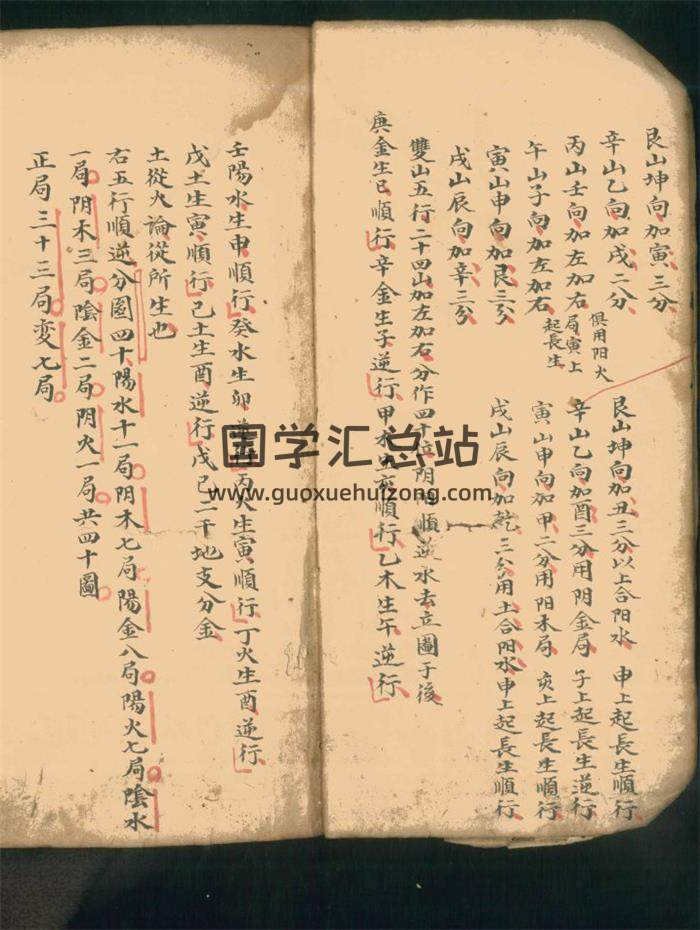 艮山坤向加寅三分
辛山乙向加戌二分
丙山壬向加左加右
俱用阳火
局寅上
起長生
午山子向加左加右
寅山申向加艮三分
戌山辰向加辛三分
艮山坤向加丑三分以上合阳水 申上起長生順行
辛山乙向加酉三分用阴金局 子上起長生逆行
寅山申向加甲二分用阳木局 亥上起長生順行
戌山辰向加乾三分用土合阳水申上起長生順行
雙山五行二十四山加左加右分作四十位阴陽順逆水去立圖于後
庚金生巳順行辛金生子逆行甲木生亥順行乙木生午逆行
壬陽水生申順行癸水生卯逆行丙火生寅順行丁火生酉逆行
戊土生寅順行己土生酉逆行戊己二干地支分金
土從火論從所生也
右五行順逆分圖四十陽水十一局阴木七局陽金八局陽火七局陰水
一局阴木三局陰金二局阴火一局共四十圖
正局三十三局変七局
国学汇总站
www.guoxuehuizong.com